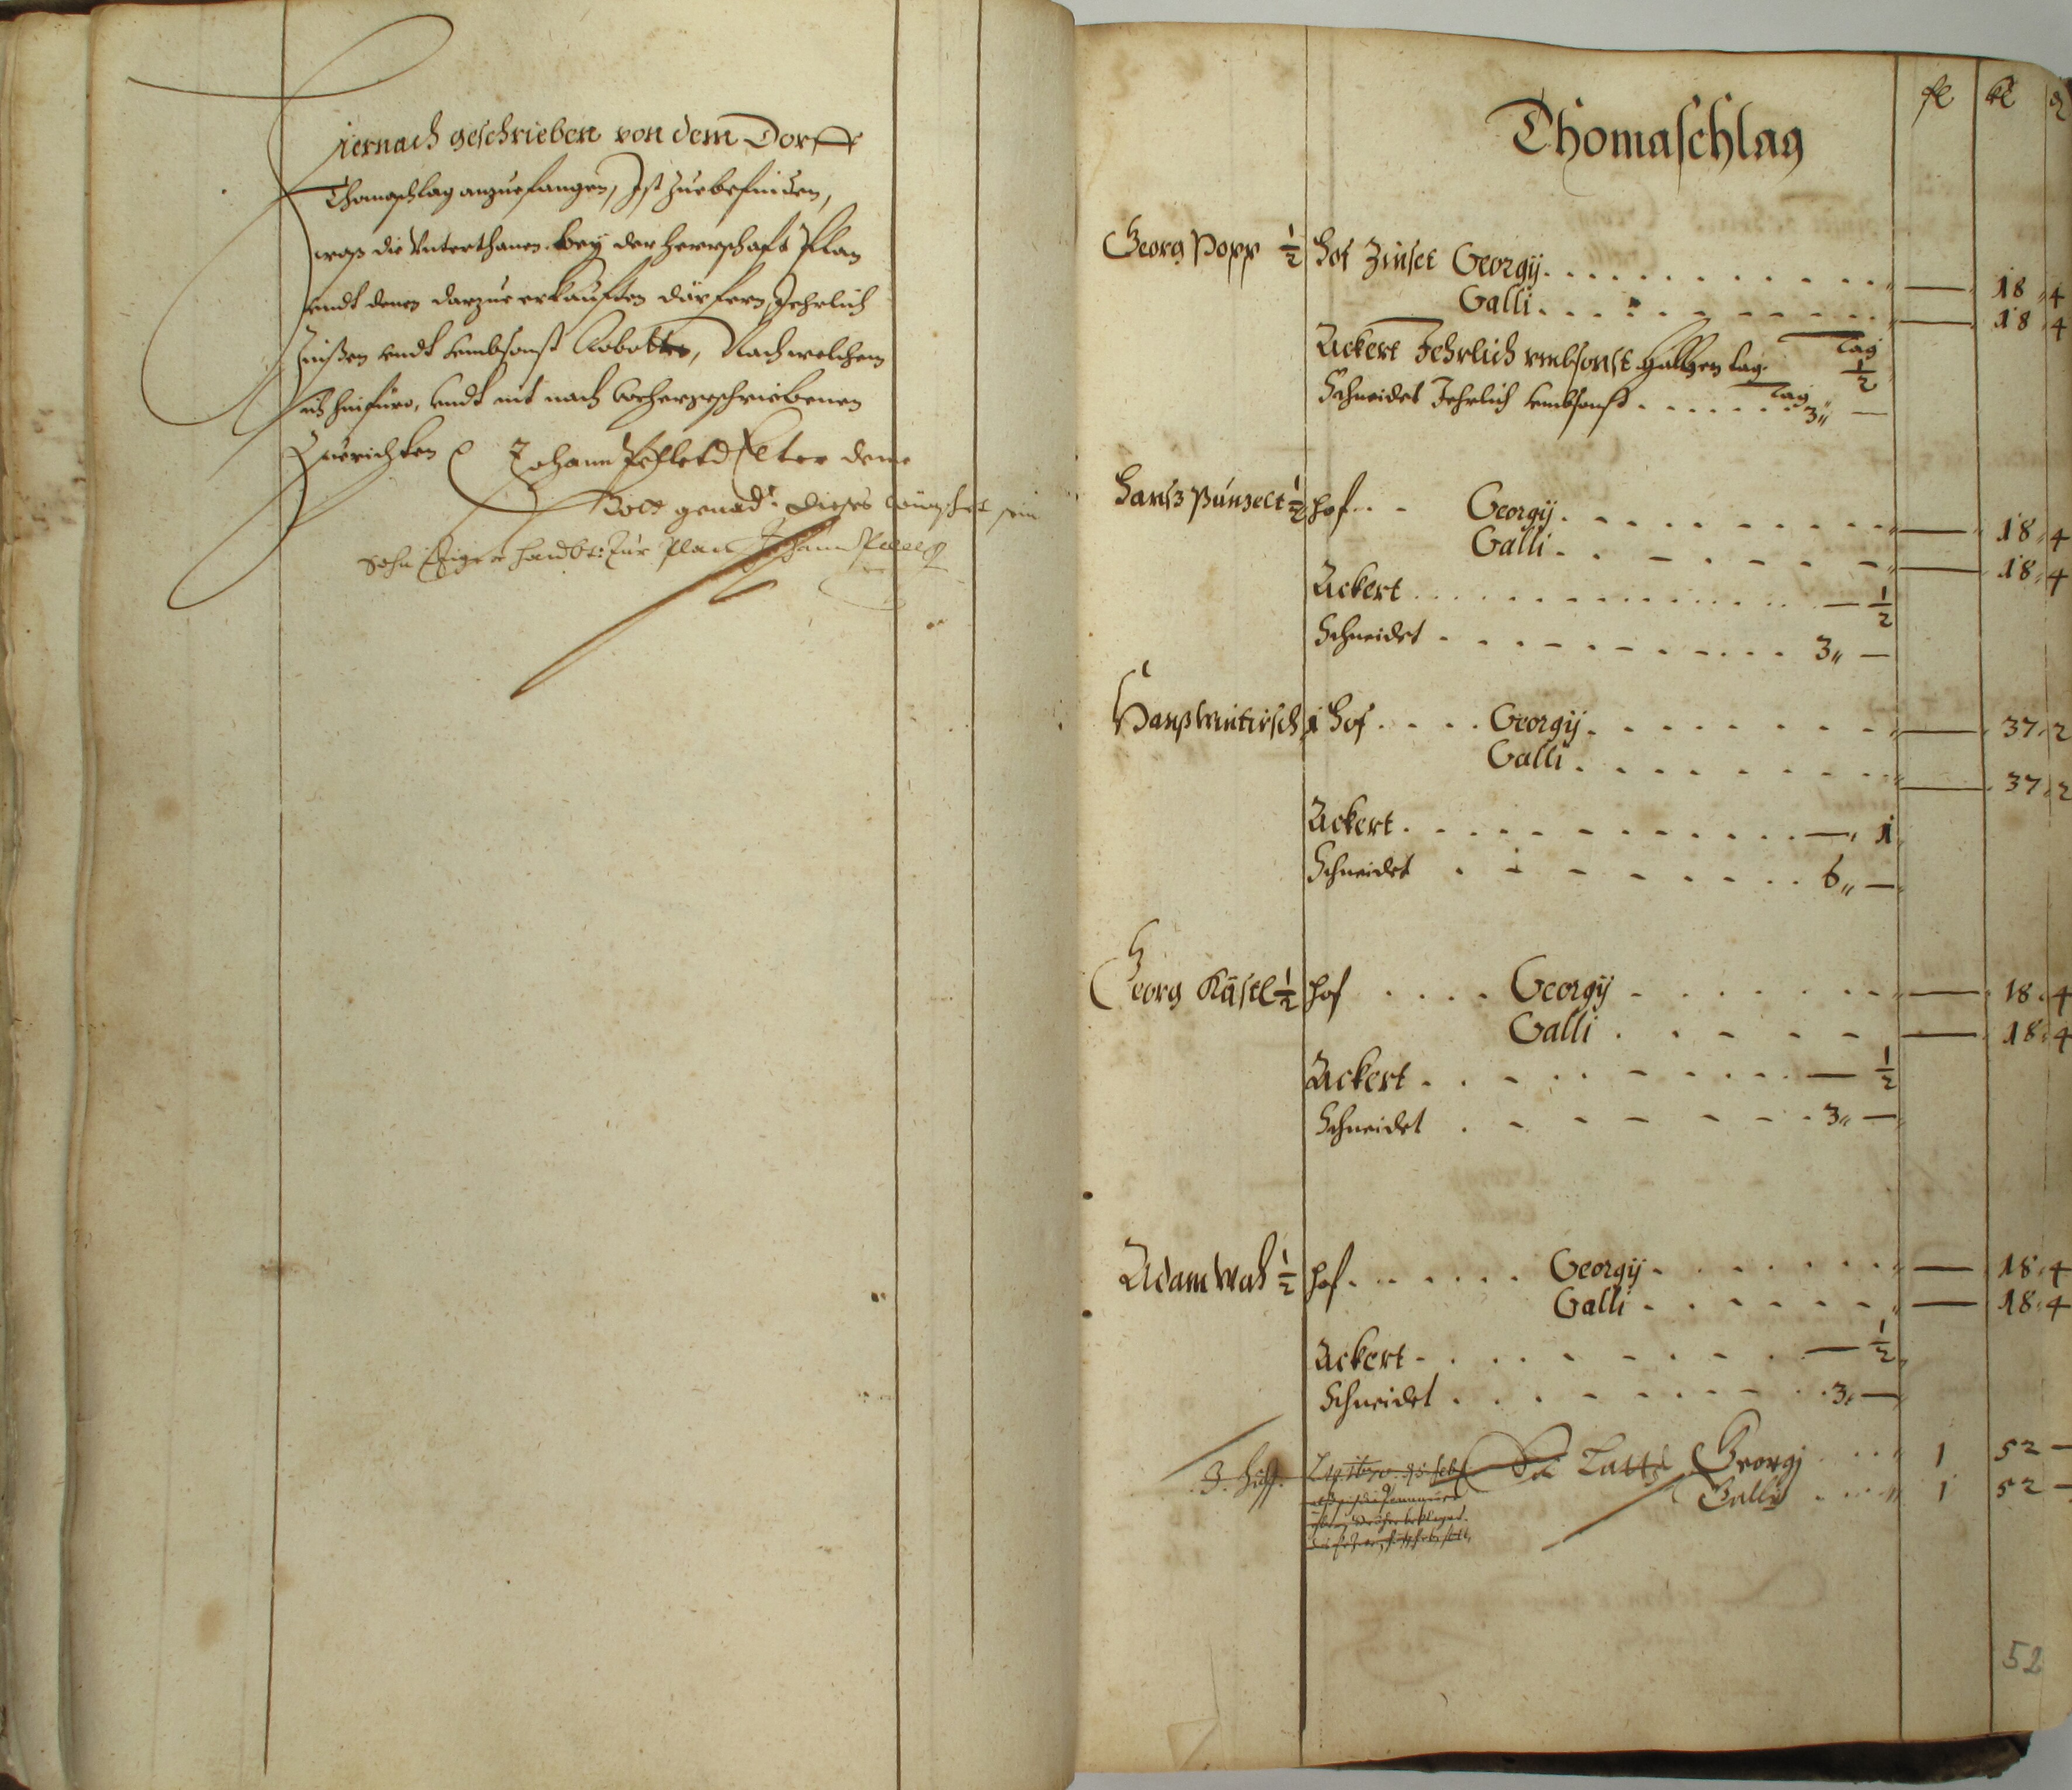 Hiernach geschrieben von dem Dorff
Thomaschlag anzuefangen, Ist zuebefinden,
waß die Vnterthanen bey der Herrschafft Plan
vndt denen darzue erkaufften dörfern Jehrlich
Zinßen vndt vmbsonst Roboten, Nach welchem
sich hinfüro, vndt nit nach vorhergeschriebenen
Zuerichten
Johann
Gott genad: dieses wünschet sein
Sohn Plan Johann
fl kr d
Thomaschlag
Georg Popp 1/2 Hof Zinset Georgij — 18 4
Galli — 18 4
Ackert Jehrlich vmbsonst halben tag Tag 1/2
Schneidet Jehrlich vmbsonst Tag 3 —
Hanß Punzelt 1/2 hof Georgij — 18 4
Galli — 18 4
Ackert — 1/2
Schneidet 3 —
Hanß Wintirsch 1 Hof Georgij — 37 2
Galli — 37 2
Ackert — 1
Schneidet 6 —
Georg Kästl 1/2 hof Georgij — 18 4
Galli — 18 4
Ackert — 1/2
Schneidet 3 —
Adam Wah 1/2 hof Georgij — 18 4
Galli — 18 4
Ackert — 1/2
Schneidet 3 —
Georgj 1 52 —
Galli 1 52 —
52